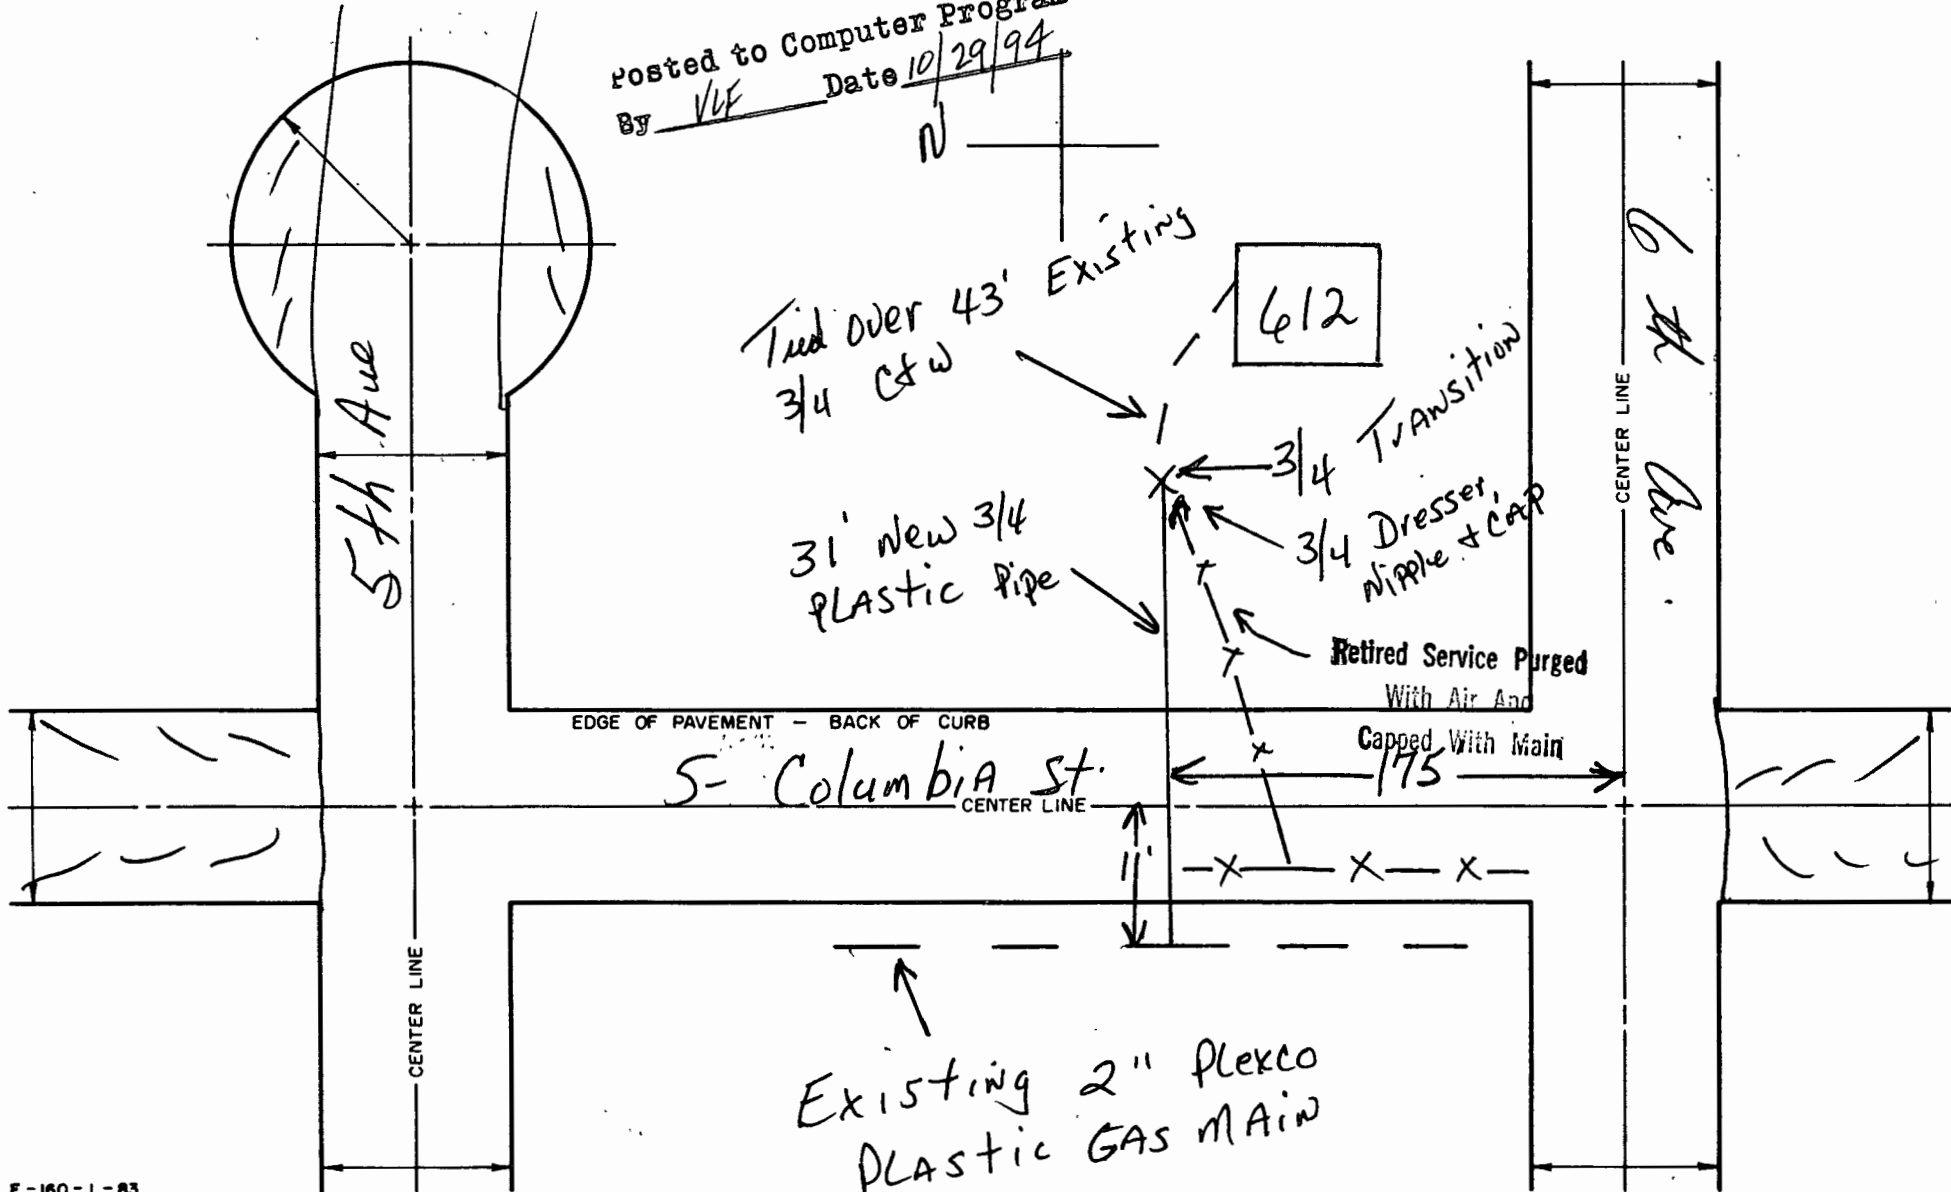 Posted to Computer Program
By VLF Date 10/29/94
N
Tied over 43' Existing
3/4 C&W
612
6th Ave.
CENTER LINE
5th Ave
3/4 Transition
3/4 Dresser,
Nipple & CAP
31' New 3/4
PLAStic Pipe
Retired Service Purged
With Air And
Capped With Main
EDGE OF PAVEMENT – BACK OF CURB
S- ColumbiA St.
175
CENTER LINE
11'
CENTER LINE
Existing 2" Plexco
PLAStic GAS MAiN
F-160-1-83